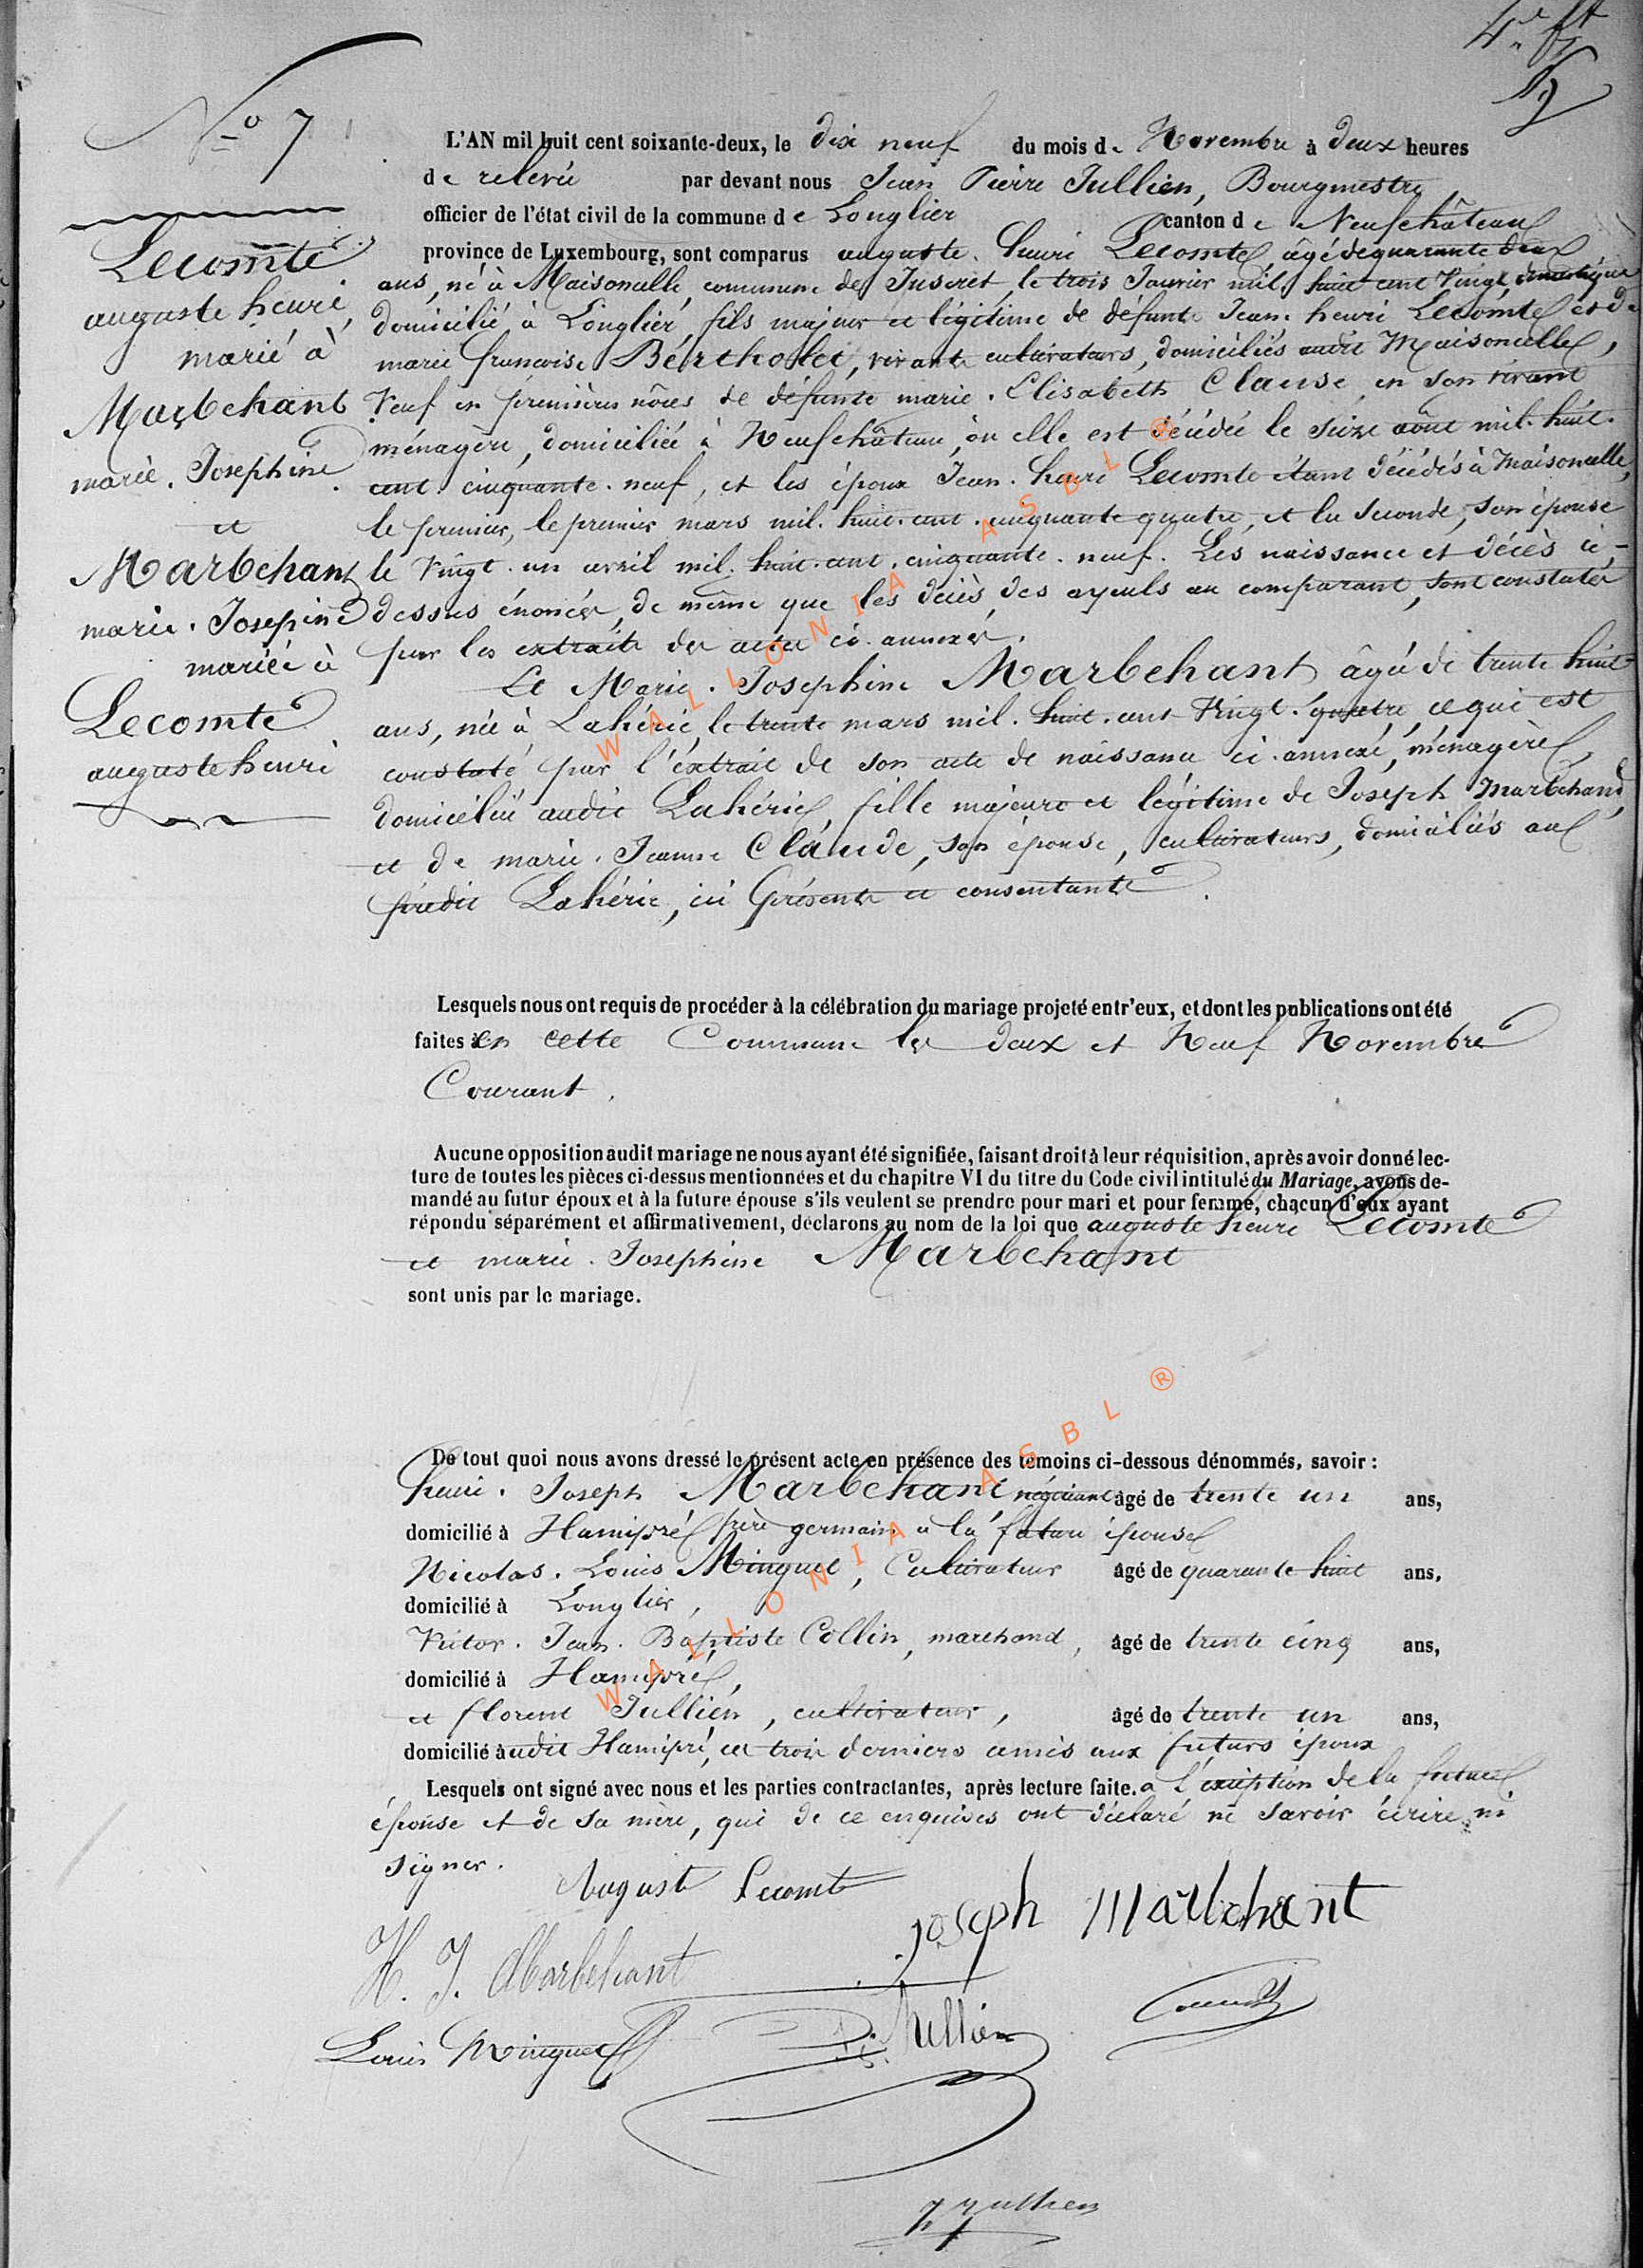 No 7
Lecomte
auguste henri,
marié à
Marbehant
marie. Josephine
et
Marbehant
marie. Josepine
mariée à
Lecomte
auguste henri
L'AN mil huit cent soixante-deux, le dix neuf du mois de Novembre à deux heures
de relevée par devant nous Jean Pierre Jullien, Bourgmestre,
officier de l'état civil de la commune de Longlier canton de Neufchâteau
province de Luxembourg, sont comparus auguste. henri Lecomte âgé de quarante deux
ans, né à Maisoncelle, commune de Juseret, le trois Janvier mil. huit cent Vingt,
domicilié à Longlier, fils majeur et légitime de défunts Jean. henri Lecomte et de
marie françoise Bértholet, vivants cultivateurs, domiciliés audit Maisoncelle,
Veuf en premières nôces de défunte marie. Elisabeth Clause, en son vivant
ménagère, domiciliée à Neufchâteau, où elle est décédée le seize août mil. huit.
cent. cinquante. neuf, et les époux Jean. henri Lecomte étant décédés à Maisoncelle,
le premier, le premier mars mil. huit. cent. cinquante quatre, et la seconde, son épouse
le Vingt. un avril mil. huit. cent. cinquante. neuf. Les naissance et décès ci-
dessus énoncés, de même que les décès des ayeuls au comparant, sont constatés
par les extraits des actes ci. annexés.
Et Marie. Josephine Marbehant âgée de trente huit
ans, née à Lahérie, le trente mars mil. huit. cent Vingt. quatre, ce qui est
constaté par l'extrait de son acte de naissance ci. annexé, ménagère,
domiciliée audit Lahérie, fille majeure et légitime de Joseph Marbehant,
et de marie. Jeanne Claude, son épouse, cultivateurs, domiciliés au
prédit Lahérie, ici présents et consentants.
Lesquels nous ont requis de procéder à la célébration du mariage projeté entr'eux, et dont les publications ont été
faites en cette Commune les deux et Neuf Novembre
Courant.
Aucune opposition audit mariage ne nous ayant été signifiée, faisant droit à leur réquisition, après avoir donné lec-
ture de toutes les pièces ci-dessus mentionnées et du chapitre VI du titre du Code civil intitulé du Mariage, avons de-
mandé au futur époux et à la future épouse s'ils veulent se prendre pour mari et pour femme, chacun d'eux ayant
répondu séparément et affirmativement, déclarons au nom de la loi que auguste henri Lecomte
et marie. Josephine Marbehant
sont unis par le mariage.
De tout quoi nous avons dressé le présent acte en présence des témoins ci-dessous dénommés, savoir :
henri. Joseph Marbehant négociant âgé de trente un ans,
domicilié à Hamipré, frère germain à la future épouse
Nicolas. Louis Minguet, Cultivateur âgé de quarante huit ans,
domicilié à Longlier,
Victor. Jean. Baptiste Collin, marchand, âgé de trente cinq ans,
domicilié à Hamipré,
et florent Jullien, cultivateur, âgé de trente un ans,
domicilié audit Hamipré, ces trois derniers amis aux futurs époux
Lesquels ont signé avec nous et les parties contractantes, après lecture faite. a l'exception de la future
épouse et de sa mère, qui de ce enquises ont déclaré ne savoir écrire ni
signer.
August Lecomte
joseph Marbehant
H. J. Marbehant
Louis Minguet
Jullien
Jullien
WALLONIA ASBL ®
WALLONIA ASBL ®